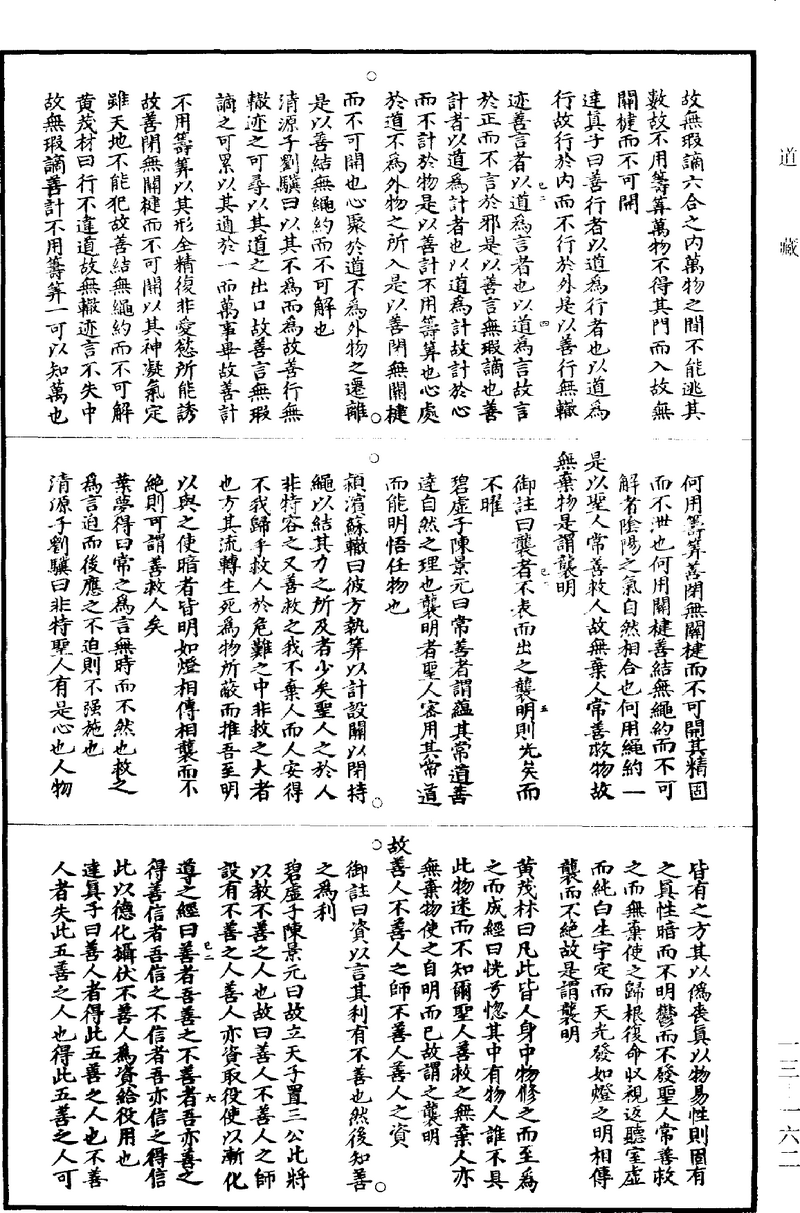 道藏
故無瑕讁六合之内萬物之間不能逃其
數故不用籌筭萬物不得其門而入故無
關楗而不可開
達真子曰善行者以道為行者也以道為
行故行於内而不行於外是以善行無轍
迹善言者以道為言者也以道為言故言
於正而不言於邪是以善言無瑕讁也善
計者以道為計者也以道為計故計於心
而不計於物是以善計不用籌筭也心處
於道不為外物之所入是以善閉無關楗
而不可開也心聚於道不為外物之遷離
是以善結無繩約而不可解也
清源子劉驥曰以其不為而為故善行無
轍迹之可尋以其道之出口故善言無瑕
讁之可累以其通於一而萬事畢故善計
不用籌筭以其形全精復非愛慾所能誘
故善閉無關楗而不可開以其神凝氣定
雖天地不能犯故善結無繩約而不可解
黃茂材曰行不違道故無轍迹言不失中
故無瑕讁善計不用籌筭一可以知萬也
何用籌筭善閉無關楗而不可開其精固
而不泄也何用關楗善結無繩約而不可
解者陰陽之氣自然相合也何用繩約一
是以聖人常善救人故無棄人常善救物故
無棄物是謂襲明
御註曰襲者不表而出之襲明則光矣而
不曜
碧虛子陳景元曰常善者謂蘊其常道善
達自然之理也襲明者聖人密用其常道
而能明悟任物也
潁濱蘇轍曰彼方執筭以計設關以閉持
繩以結其力之所及者少矣聖人之於人
非特容之又善救之我不棄人而人安得
不我歸乎救人於危難之中非救之大者
也方其流轉生死為物所蔽而推吾至明
以與之使暗者皆明如燈相傳相襲而不
絕則可謂善救人矣
葉夢得曰常之為言無時而不然也救之
為言迫而後應之不迫則不强施也
清源子劉驥曰非特聖人有是心也人物
皆有之方其以偽喪真以物易性則固有
之真性暗而不明鬱而不發聖人常善救
之而無棄使之歸根復命收視返聽室虛
而純白生宇定而天光發如燈之明相傳
襲而不絕故是謂襲明
黃茂林曰凡此皆人身中物修之而至為
之而成經曰恍兮惚其中有物人誰不具
此物迷而不知爾聖人善救之無棄人亦
無棄物使之自明而已故謂之襲明
故善人不善人之師不善人善人之資
御註曰資以言其利有不善也然後知善
之為利
碧虛子陳景元曰故立天子置三公此將
以教不善之人也故曰善人不善人之師
設有不善之人善人亦資取役使以漸化
導之經曰善者吾善之不善者吾亦善之
得善信者吾信之不信者吾亦信之得信
此以德化攝伏不善人為資給役用也
達真子曰善人者得此五善之人也不善
人者失此五善之人也得此五善之人可
一三—一六二